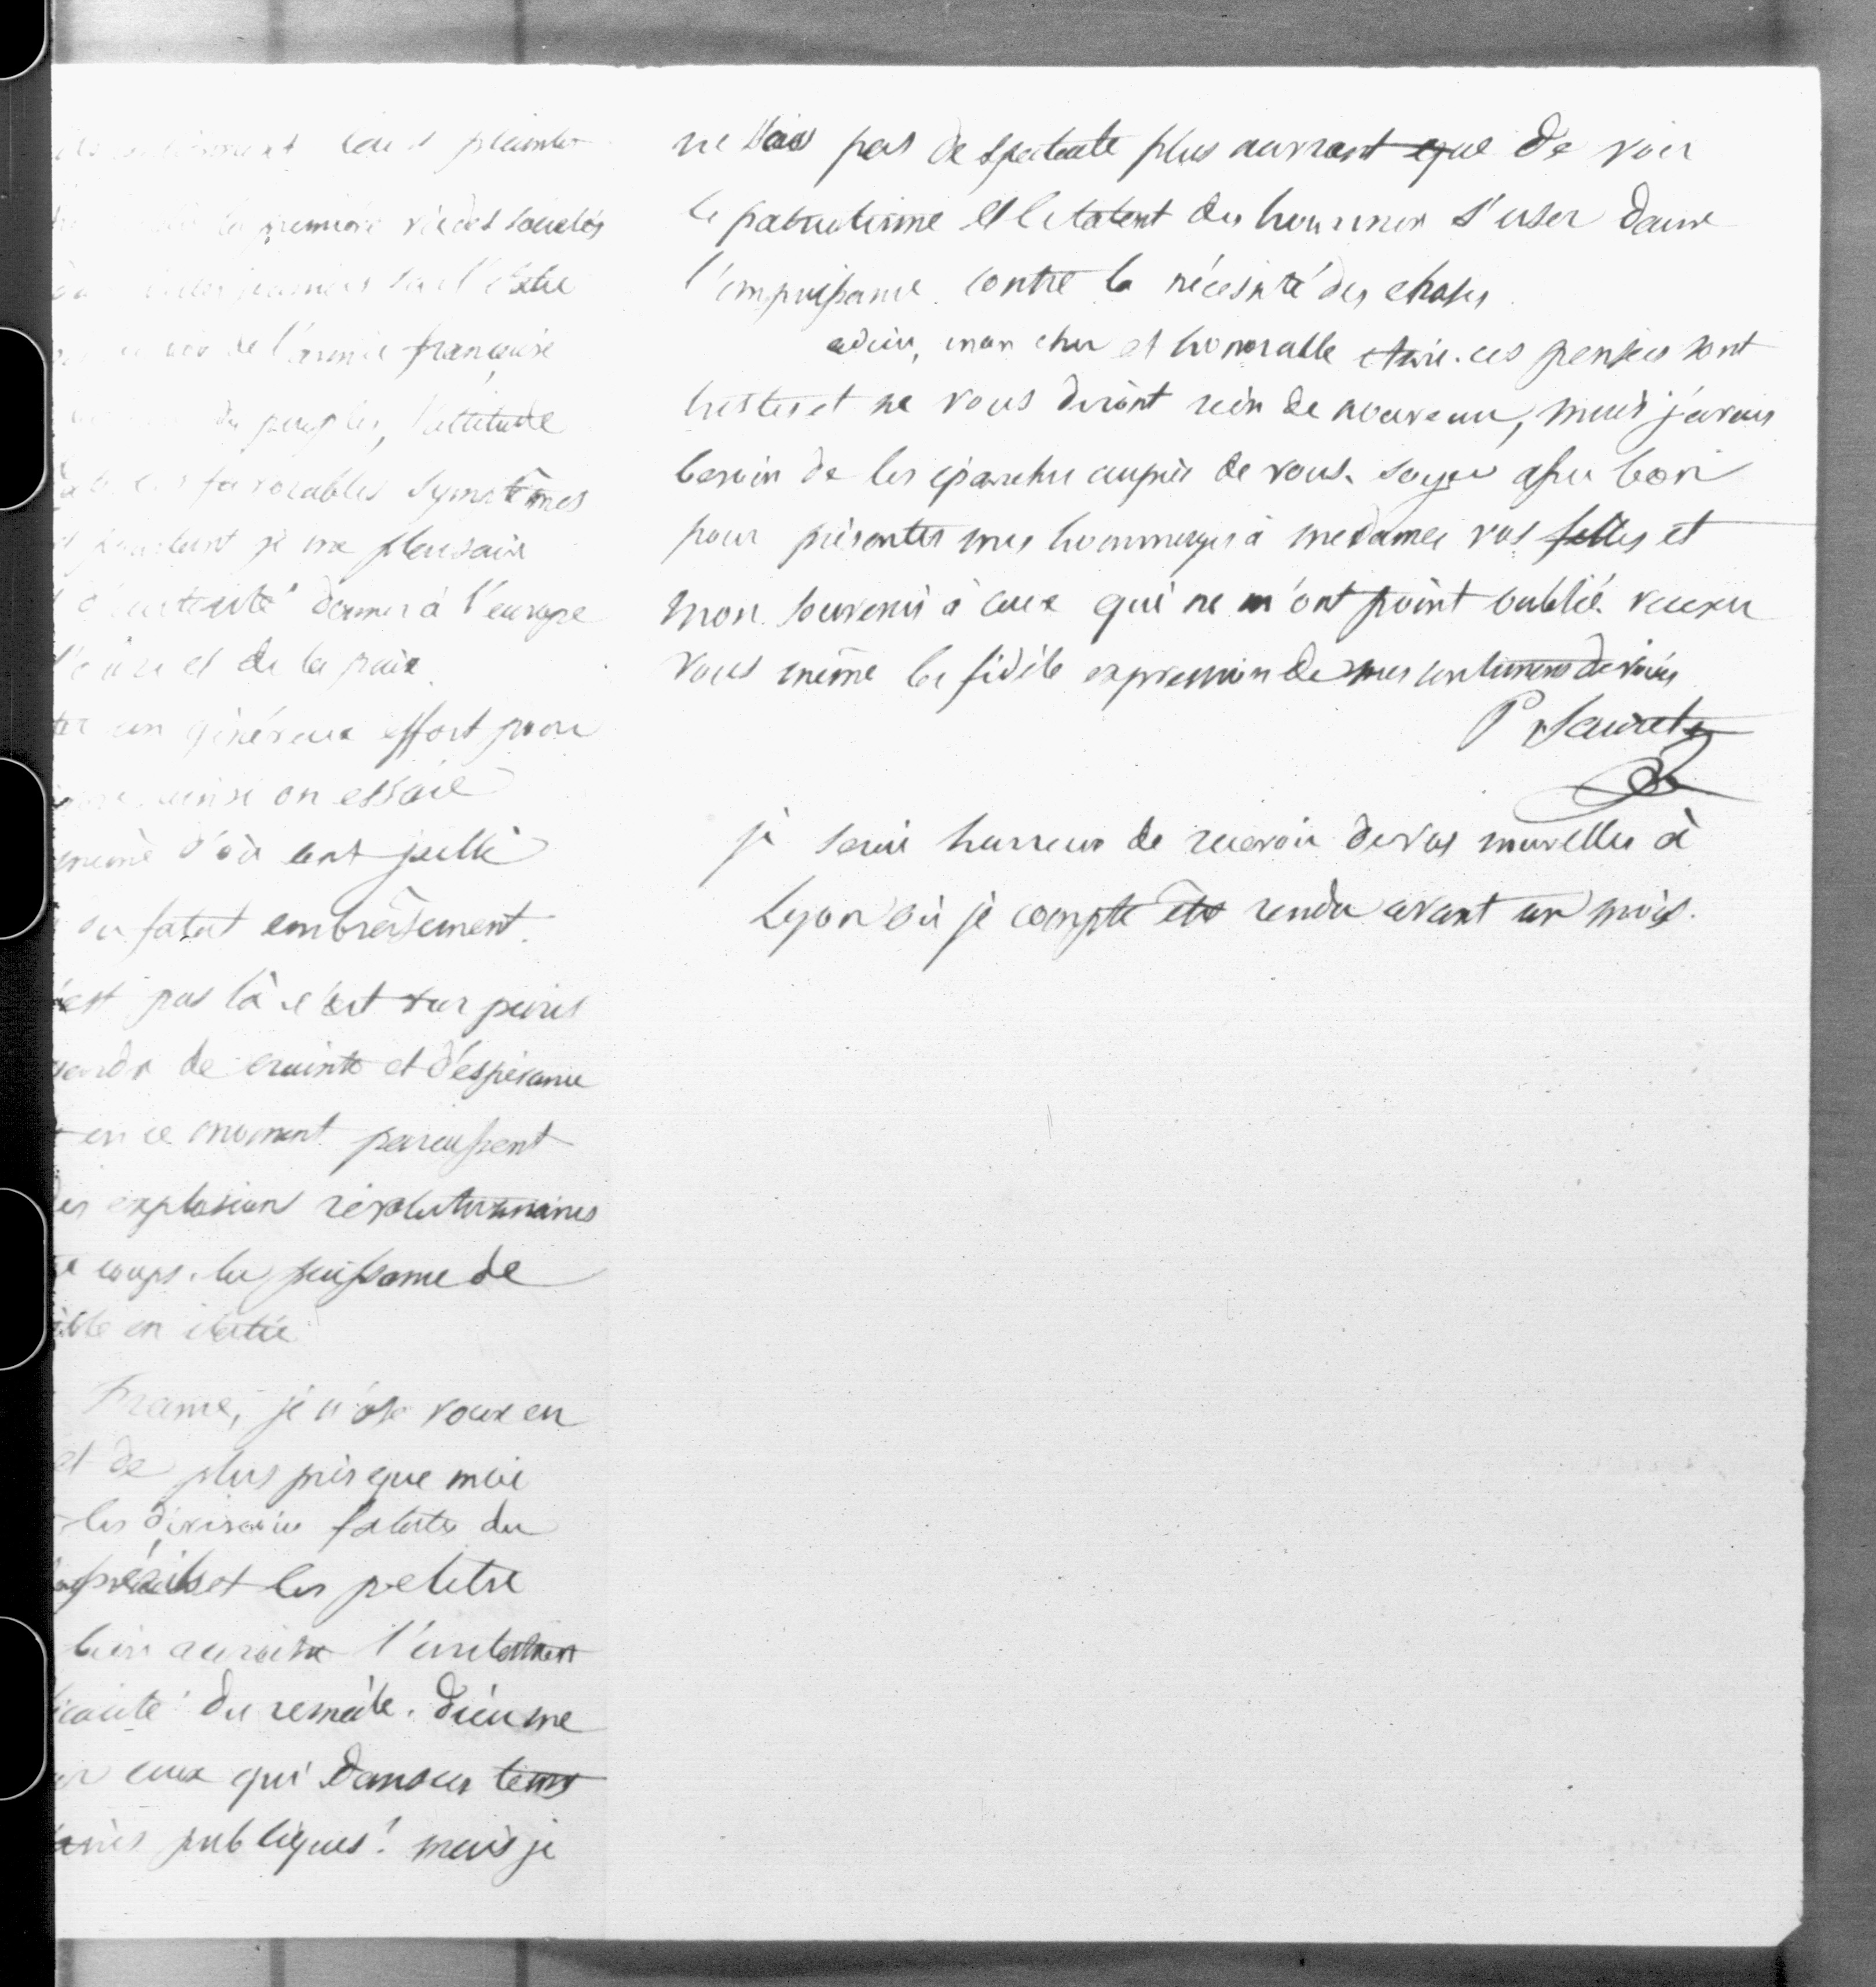 plaindre
la première vie des sociétés
jamais sur l'
de l'armée française
des peuples, l'attitude
favorables symptômes
je me plaisais
donner à l'europe
et de la paix.
un généreux effort pour
ainsi on essaie
d'où ont jailli
fatal embrâsement.
est pas là c'est sur
de crainte et d'espérance
en ce moment paraissent
des explosions révolutionnaires
coups. la puissance de
en italie
France, je n'ose vous en
et de plus près que moi
les divisions fatales du
et les petites
bien
du remède. Dieu me
ceux qui dans ces tems
publiques! mais je
ne sais pas de spectacle plus navrant que de voir
le patriotisme et le talent des hommes s'user dans
l'impuissance contre la nécessité des choses.
adieu, mon cher et honorable ces pensées sont
tristes et ne vous diront rien de nouveau, mais j'avais
besoin de les épancher auprès de vous. soyez assez bon
pour présenter mes hommages à mesdames vos filles et
mon souvenir à ceux qui ne m'ont point oublié. recevez
vous même la fidèle expression de mes sentimens dévoués
P Sauzet
je serai heureux de recevoir de vos nouvelles à
Lyon où je compte être rendu avant un mois.